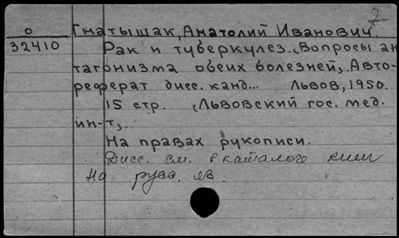 7
0 Гнатышак, Анатолий Иванович.
32410 Рак и туберкулез. (Вопросы ан-
тагонизма обеих болезней). Авто-
реферат дисс. канд... Львов, 1950.
15 стр. (Львовский гос. мед.
ин-т).
На правах рукописи.
Дисс. см. в каталоге книг
на русс. яз.